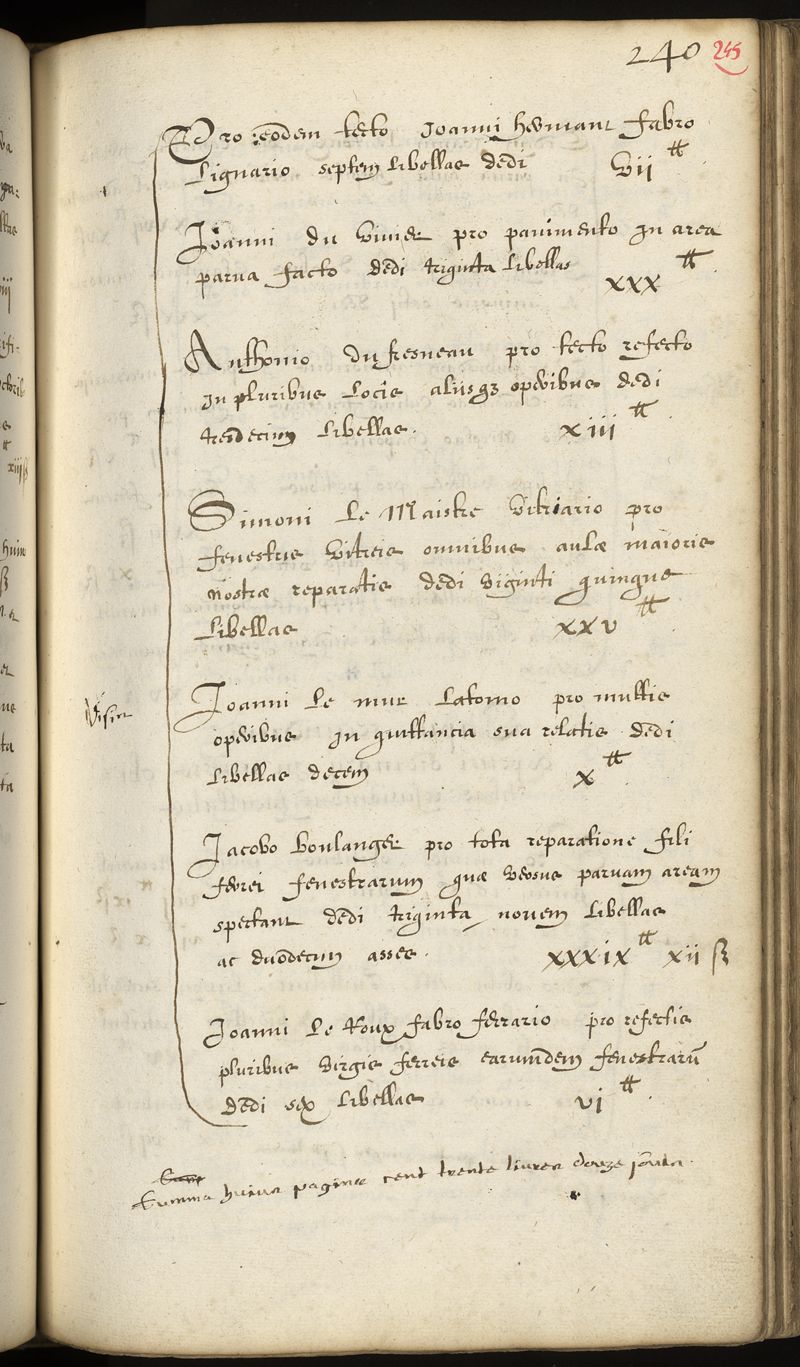 240 245
Pro eodem tecto Joanni hermant fabro
Lignario septem libellas dedi vii ₶
Joanni du Vivier pro pavimento in area
parva facto dedi triginta libellas xxx ₶
Anthonio dufresneau pro tecto refecto
in pluribus Locis aliisqꝫ operibus dedi
tredecim Libellas. xiii ₶
Simoni Le Maistre Vitriario pro
fenestris Vitreis omnibus aulæ maioris
nostræ reparatis dedi Viginti quinque
Libellas xxv ₶
Joanni Le mur Latomo pro multis
operibus in quittancia sua relatis dedi
Libellas decem x ₶
Jacobo Boulanger pro tota reparatione fili
ferrei fenestrarum quæ versus parvam aream
spectant dedi triginta novem Libellas
ac duodecim asses. xxxix ₶ xii ß
Joanni Le Roux fabro ferrario pro refectis
pluribus Virgis ferreis earumdem fenestrarū
dedi sex Libellas vi ₶
Summa huius paginæ cent trente livres douze soulz